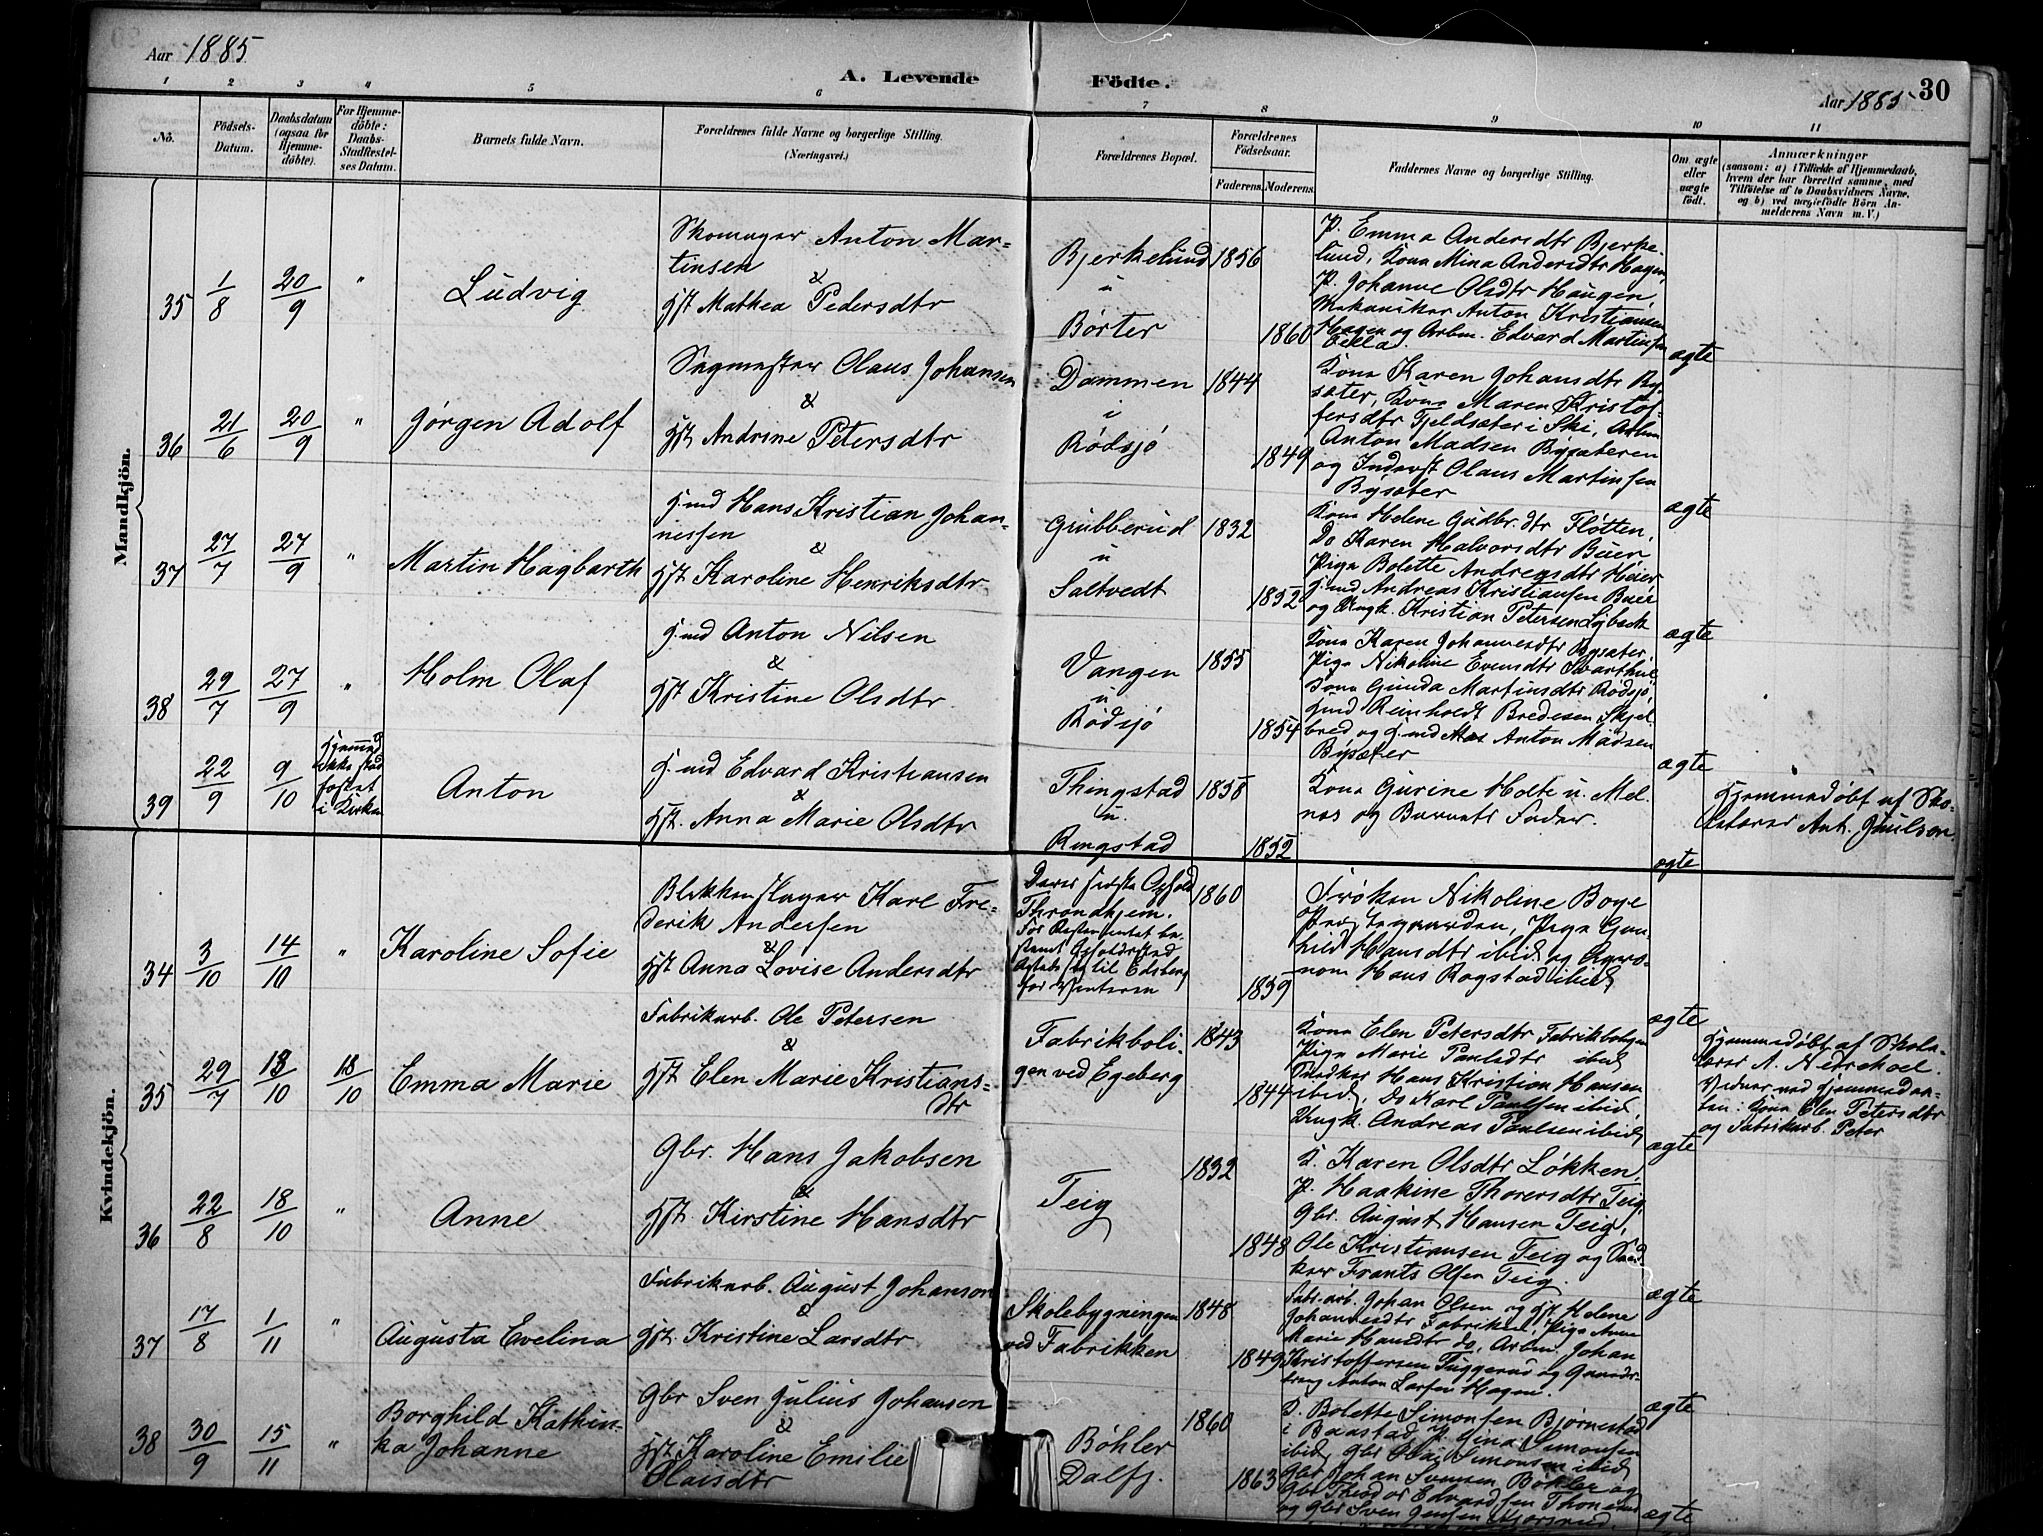 Aar 1885
A. Levende Födte.
30
Aar 1885
1 2 3 4 5 6 7 8 9 10 11
No.
Födsels-Datum.
Daabsdatum (ogsaa for Hjemme-döbte).
For Hjemme-döbte: Daabs-Stadfæstel-ses Datum.
Barnets fulde Navn.
Forældrenes fulde Navne og borgerlige Stilling.
(Næringsvei.)
Forældrenes Bopæl.
Forældrenes Födselsaar.
Faderens. Moderens.
Faddernes Navne og borgerlige Stilling.
Om ægte eller uægte födt.
Anmærkninger
(saasom: a) i Tilfælde af Hjemmedaab,
hvem der har forrettet samme, med
Tilföielse af to Daabsvidners Navne,
og b) ved uægtefödte Börn An-
melderens Navn m. V.)
Mandkjön.
35 1/8 20/9 "
Ludvig
Skomager Anton Mar-
tinsen
&
Hst Mathea Pedersdtr
Bjerkelund
u
Børter
1856
1860
P. Emma Andersdtr Bjerke-
lund, Kona Mina Andersdtr Hagen,
P. Johanne Olsdtr Haugen,
Mekaniker Anton Kristiansen
Hagen og Arbm. Edvard Martinsen
ægte
36 21/6 20/9 "
Jørgen Adolf
Sagmester Olaus Johansen
&
Hst Andrine Petersdtr
Dammen
i
Rødsjø
1844
1849
Kona Karen Johansdtr By-
sæter, Kona Maren Kristof-
fersdtr Fjeldsæter i Ski, Arbm
Anton Madsen Bysæteren
og Inderst Olaus Martinsen
Bysæter
ægte
37 27/7 27/9 "
Martin Hagbarth
Hmd Hans Kristian Johan-
nessen
&
Hst Karoline Henriksdtr
Grubberud
u
Saltvedt
1832
1852
Kona Helene Gudbr.dtr Fløtten,
Do Karen Halvorsdtr Buer
Piga Bolette Andreasdtr Heier
Hmd Andreas Kristiansen Buer
og Ungk. Kristian Petersen Lybæk
ægte
38 29/7 27/9 "
Holm Olaf
Hmd Anton Nilsen
&
Hst Kristine Olsdtr
Vangen
u
Rødsjø
1855
1854
Kona Karen Johannesdtr Bysæter,
Piga Nikoline Evensdtr Svarthul
Kona Gunda Martinsdtr Rødsjø
Hmd Reinholdt Bredesen Skjel-
bred og Hmd Anton Madsen
Bysæter
ægte
39 22/9 9/10
i Kirken
Anton
Hmd Edvard Kristiansen
&
Hst. Anna Marie Olsdtr
Thingstad
u.
Ringstad
1858
1852
Kona Gurine Holte u. Mel-
nes og Barnets Fader.
ægte
Hjemmedøbt af Sko-
lelærer Ant. Paulsen
Kvindekjön.
34 3/10 14/10 "
Karoline Sofie
Blikkenslager Karl Fre-
derik Andersen
&
Hst Anna Lovise Andersdtr
Throndhjem.
til Edsberg
for Vinteren
1860
1859
Frøken Nikoline Boye
Præstegaarden, Piga Gun-
hild Hansdtr ibid og Agro-
nom Hans Rogstad ibid
ægte
35 29/7 13/10 18/10
Emma Marie
Fabrikarb. Ole Petersen
&
Hst Elen Marie Kristians-
dtr
Fabrikboli-
gen ved Egeberg
1843
1844
Kona Elen Petersdtr Fabrikboligen
Piga Marie Paulsdtr ibid
Snedker Hans Kristian Hansen
ibid, Do Karl Paulsen ibid,
Ungk. Andreas Paulsen ibid
ægte
Hjemmedøbt af Skole-
lærer A. Netrehoel.
Vidner ved Hjemmedaa-
ben: Kona Elen Petersdtr
og Fabrikarb. Peter
36 22/8 18/10 "
Anne
Gbr. Hans Jakobsen
&
Hst. Kirstine Hansdtr
Teig
1832
1848
K. Karen Olsdtr Løkken,
P. Haakine Thorersdtr Teig,
Gbr. August Hansen Teig,
Ole Kristiansen Teig og Sned-
ker Frants Olsen Teig.
ægte
37 17/8 1/11 "
Augusta Evelina
Fabrikarb. August Johanson
&
Hst. Kristine Larsdtr
Skolebygningen
ved Fabrikken
1848
1849
Fabr.arb. Johan Olsen og Hst Helene
Johannesdtr Fabriken, Piga Anne
Marie Hansdtr do, Arbm. Johan
Kristoffersen Tuggerud og Gaards-
dreng Anton Larsen Hagen.
ægte
38 30/9 15/11 "
Borghild Kathin-
ka Johanne
Gbr Sven Julius Johansen
&
Hst Karoline Emilie
Olaisdtr
Bøhler
Dalfj.
1860
1863
K. Bolette Simonsen Bjørnestad
i Baastad, P. Gina Simonsen
ibid, Gbr Olai Simonsen ibid
Gbr Johan Svensen Bøhler og
Gbr Theodor Edvardsen Thonerud
og Gbr Sven Jensen
ægte